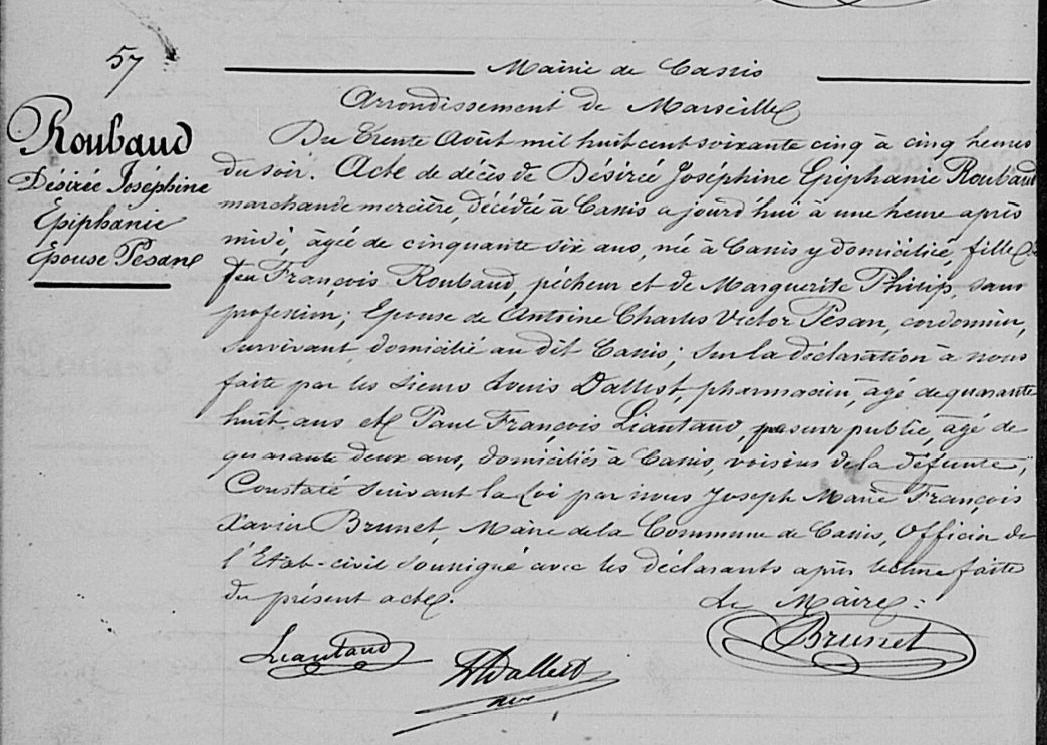 57
Mairie de Cassis
Arrondissement de Marseille
Roubaud
Désirée Joséphine
Epiphanie
Epouse Pesan
Du trente Août mil huit cent soixante cinq à cinq heures
du soir. Acte de décès de Désirée Joséphine Epiphanie Roubaud
marchande mercière, décédée à Cassis aujourd'hui à une heure après
midi, âgée de cinquante six ans, née à Cassis y domiciliée, fille de
feu François Roubaud, pêcheur et de Marguerite Philip, sans
profession; Epouse de Antoine Charles Victor Pesan, cordonnier,
survivant, domicilié au dit Cassis; sur la déclaration à nous
faite par les sieurs Louis Dallest, pharmacien, âgé de quarante
huit ans et Paul François Liautaud, peseur public, âgé de
quarante deux ans, domiciliés à Cassis, voisins de la défunte,
Constaté suivant la Loi par nous Joseph Marie François
Xavier Brunet, Maire de la Commune de Cassis, Officier de
l'Etat-civil soussigné avec les déclarants après lecture faite
du présent acte.
Le Maire:
Liautaud
Dallest
Brunet